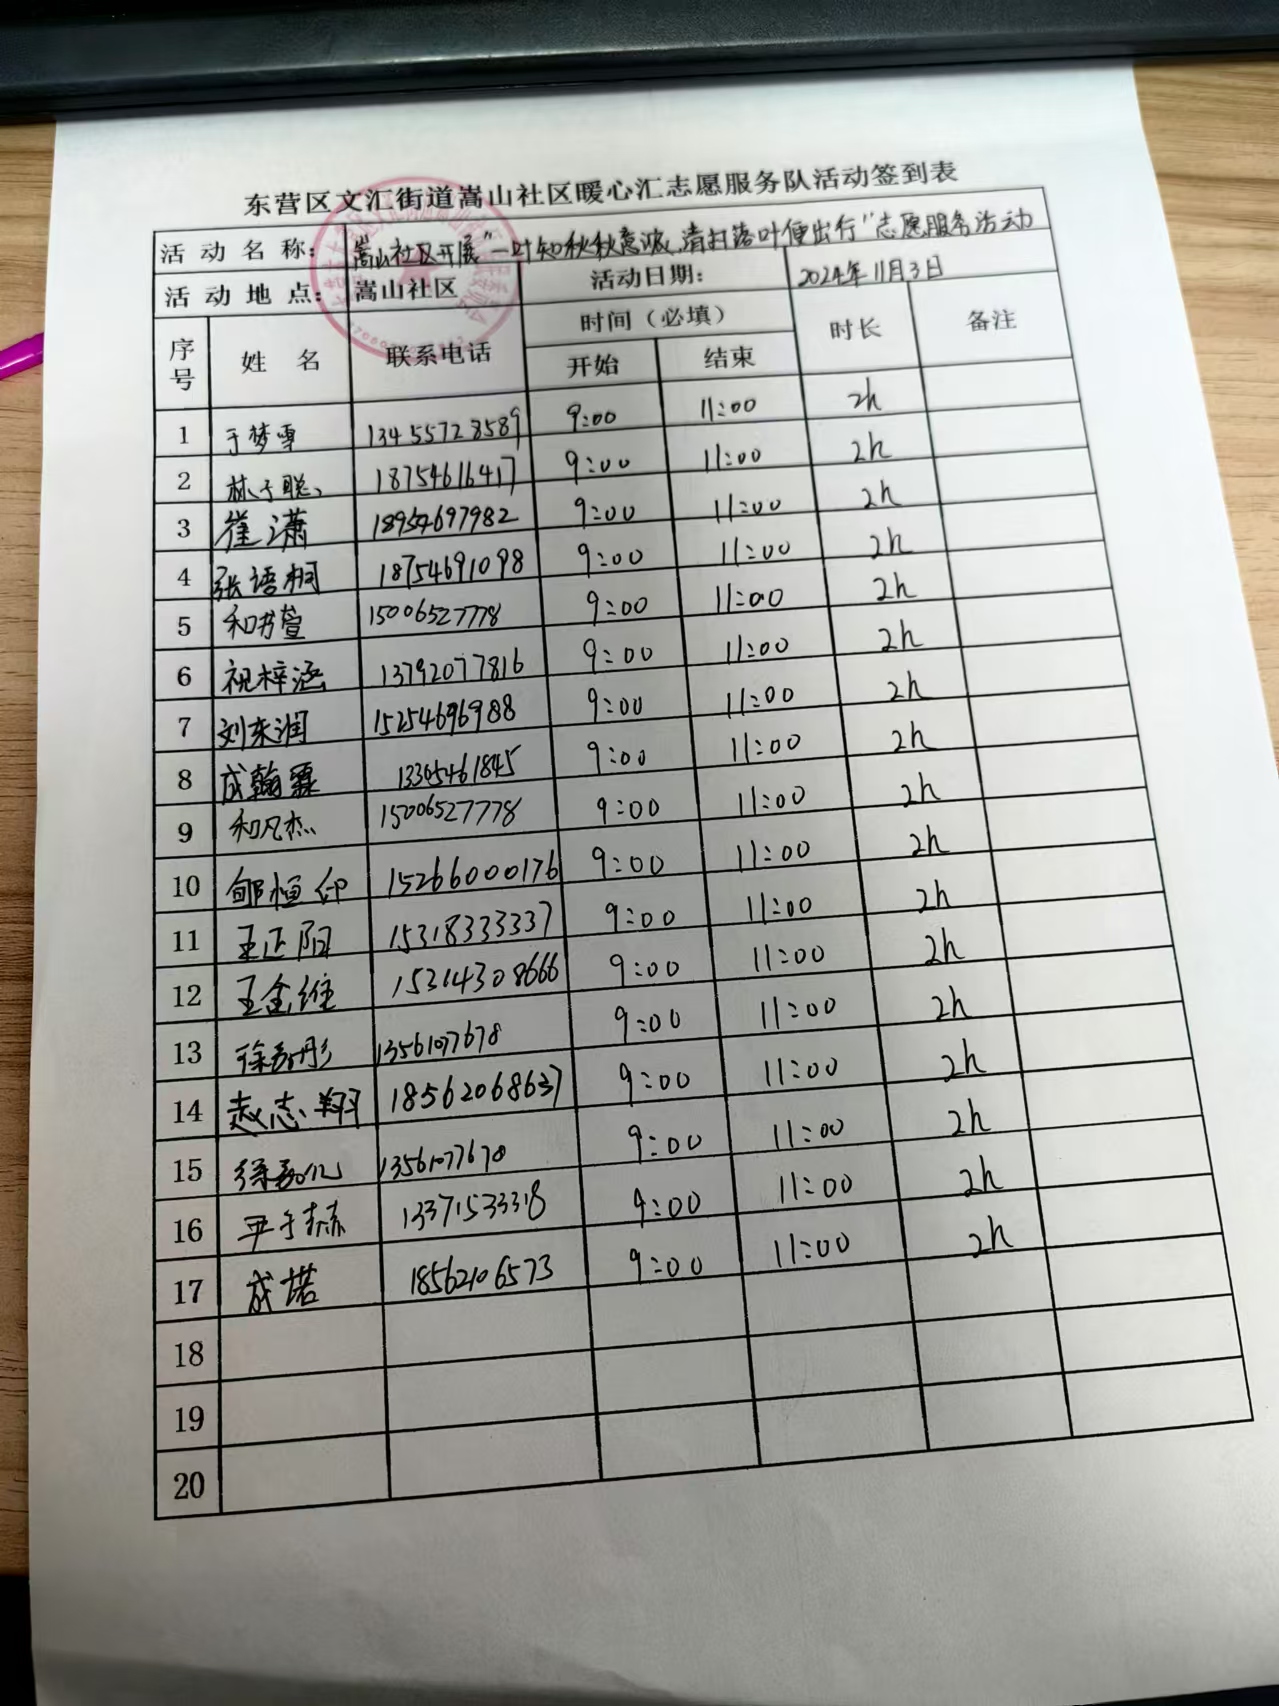 东营区文汇街道嵩山社区暖心汇志愿服务队活动签到表
活动名称： 嵩山社区开展"一叶知秋秋意浓,清扫落叶便出行"志愿服务活动
活动地点： 嵩山社区 活动日期： 2024年11月3日
序号 姓名 联系电话 时间（必填） 时长 备注
开始 结束
1 于梦雪 13455728589 9:00 11:00 2h
2 林子聪 18754616417 9:00 11:00 2h
3 崔潇 18954697982 9:00 11:00 2h
4 张语桐 18754691098 9:00 11:00 2h
5 和书萱 15006527778 9:00 11:00 2h
6 祝梓涵 13792077816 9:00 11:00 2h
7 刘东润 15254696988 9:00 11:00 2h
8 成翰霖 13365461845 9:00 11:00 2h
9 和凡杰 15006527778 9:00 11:00 2h
10 邹恒 15266000176 9:00 11:00 2h
11 王正阳 15318333337 9:00 11:00 2h
12 王金维 15314308666 9:00 11:00 2h
13 徐 彤 13561077678 9:00 11:00 2h
14 赵志翔 18562068637 9:00 11:00 2h
15 徐 13561077678 9:00 11:00 2h
16 平子赫 13371533318 9:00 11:00 2h
17 成诺 18562106573 9:00 11:00 2h
18
19
20